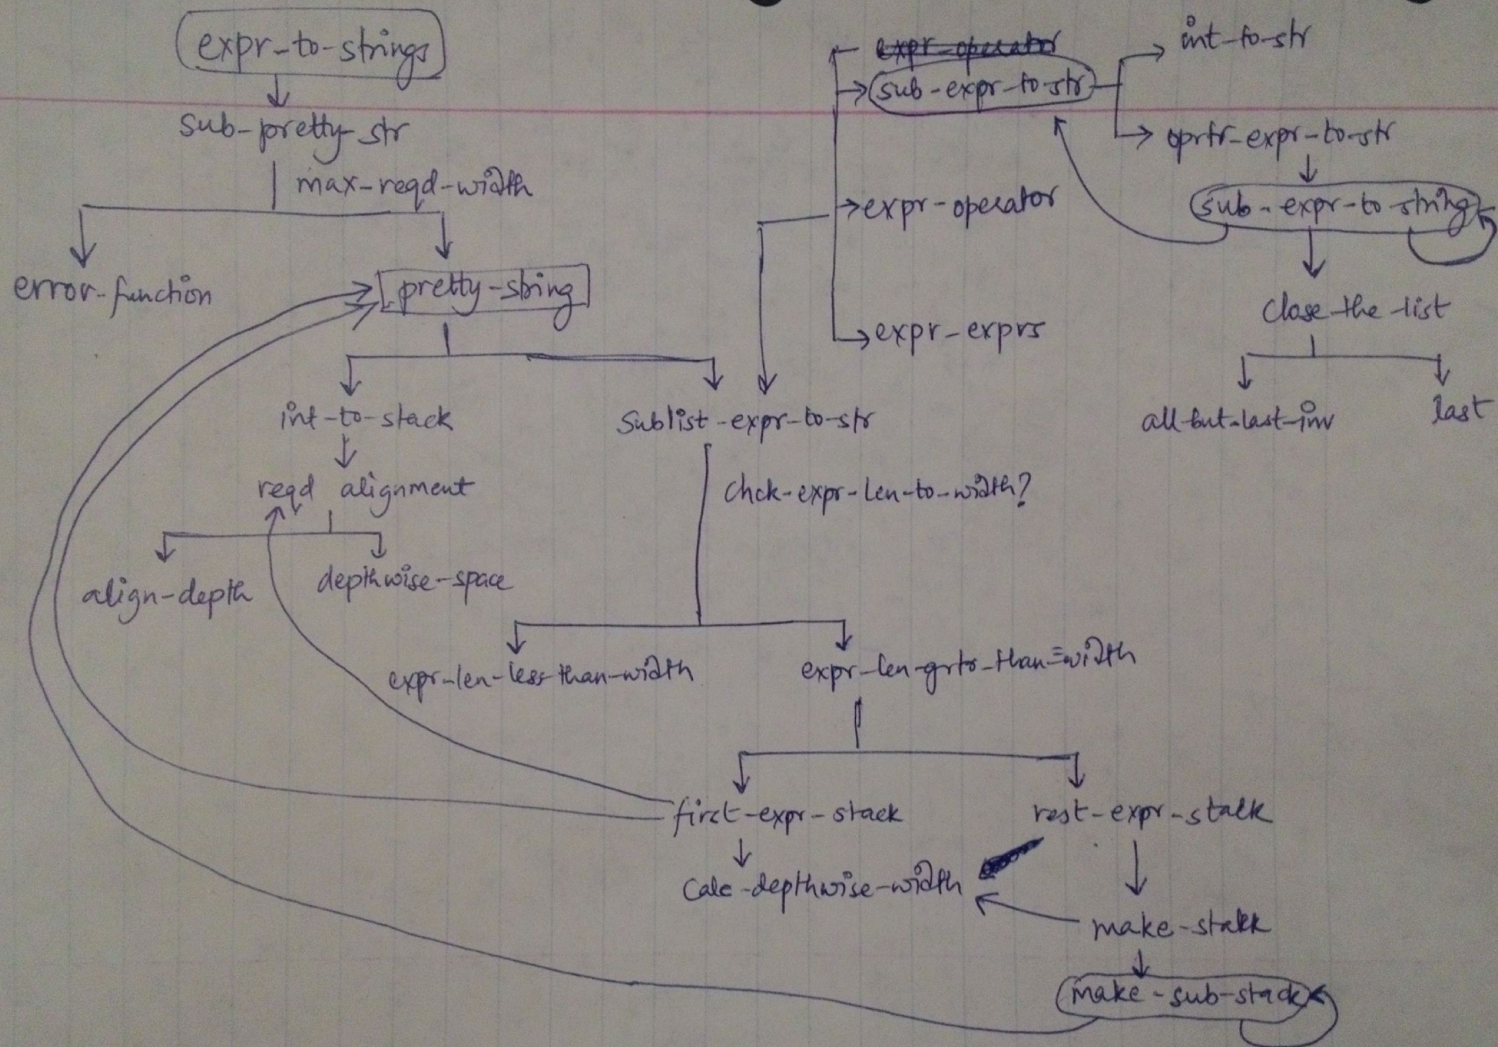 expr-to-strings
sub-pretty-str
max-reqd-width
error-function
pretty-string
int-to-stack
reqd alignment
align-depth
depthwise-space
sublist-expr-to-str
chck-expr-len-to-width?
expr-len-less-than-width
expr-len-grtr-than=width
first-expr-stack
rest-expr-stack
calc-depthwise-width
make-stack
make-sub-stack
expr-operator
sub-expr-to-str
expr-operator
expr-exprs
int-to-str
oprtr-expr-to-str
sub-expr-to-string
close-the-list
all-but-last-inv
last